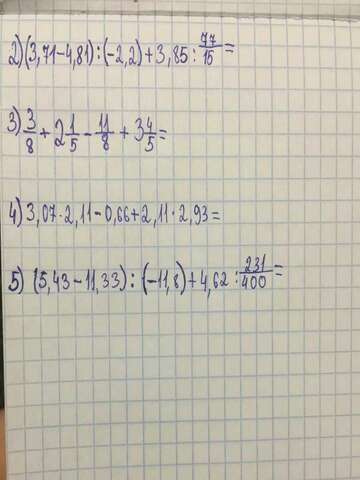 2) (3,71-4,81):(-2,2)+3,85:77/15=
3) 3/8+2 1/5-11/8+3 4/5=
4) 3,07·2,11-0,66+2,11·2,93=
5) (5,43-11,33):(-11,8)+4,62:231/400=